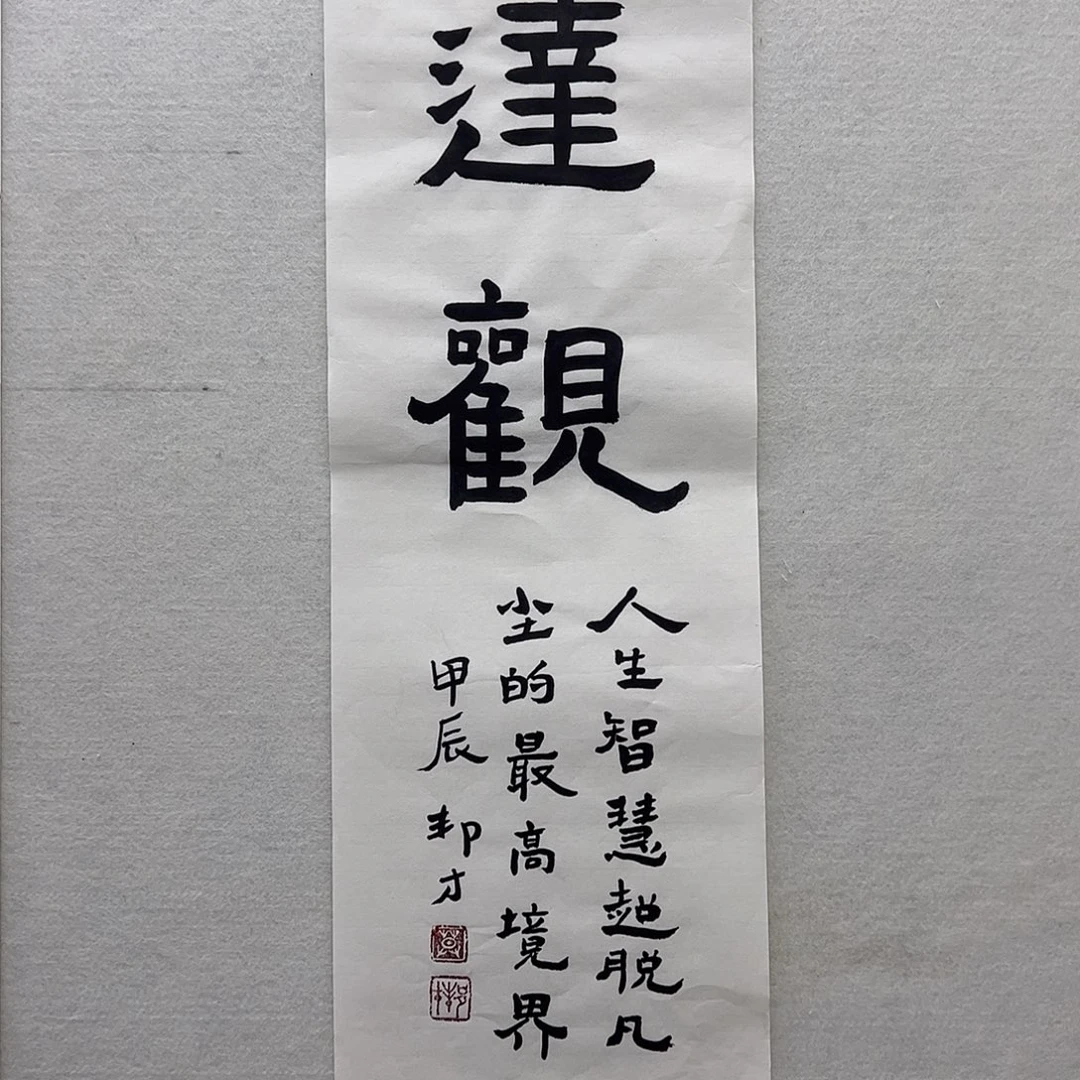 達觀
人生智慧超脱凡
尘的最高境界
甲辰 邦才